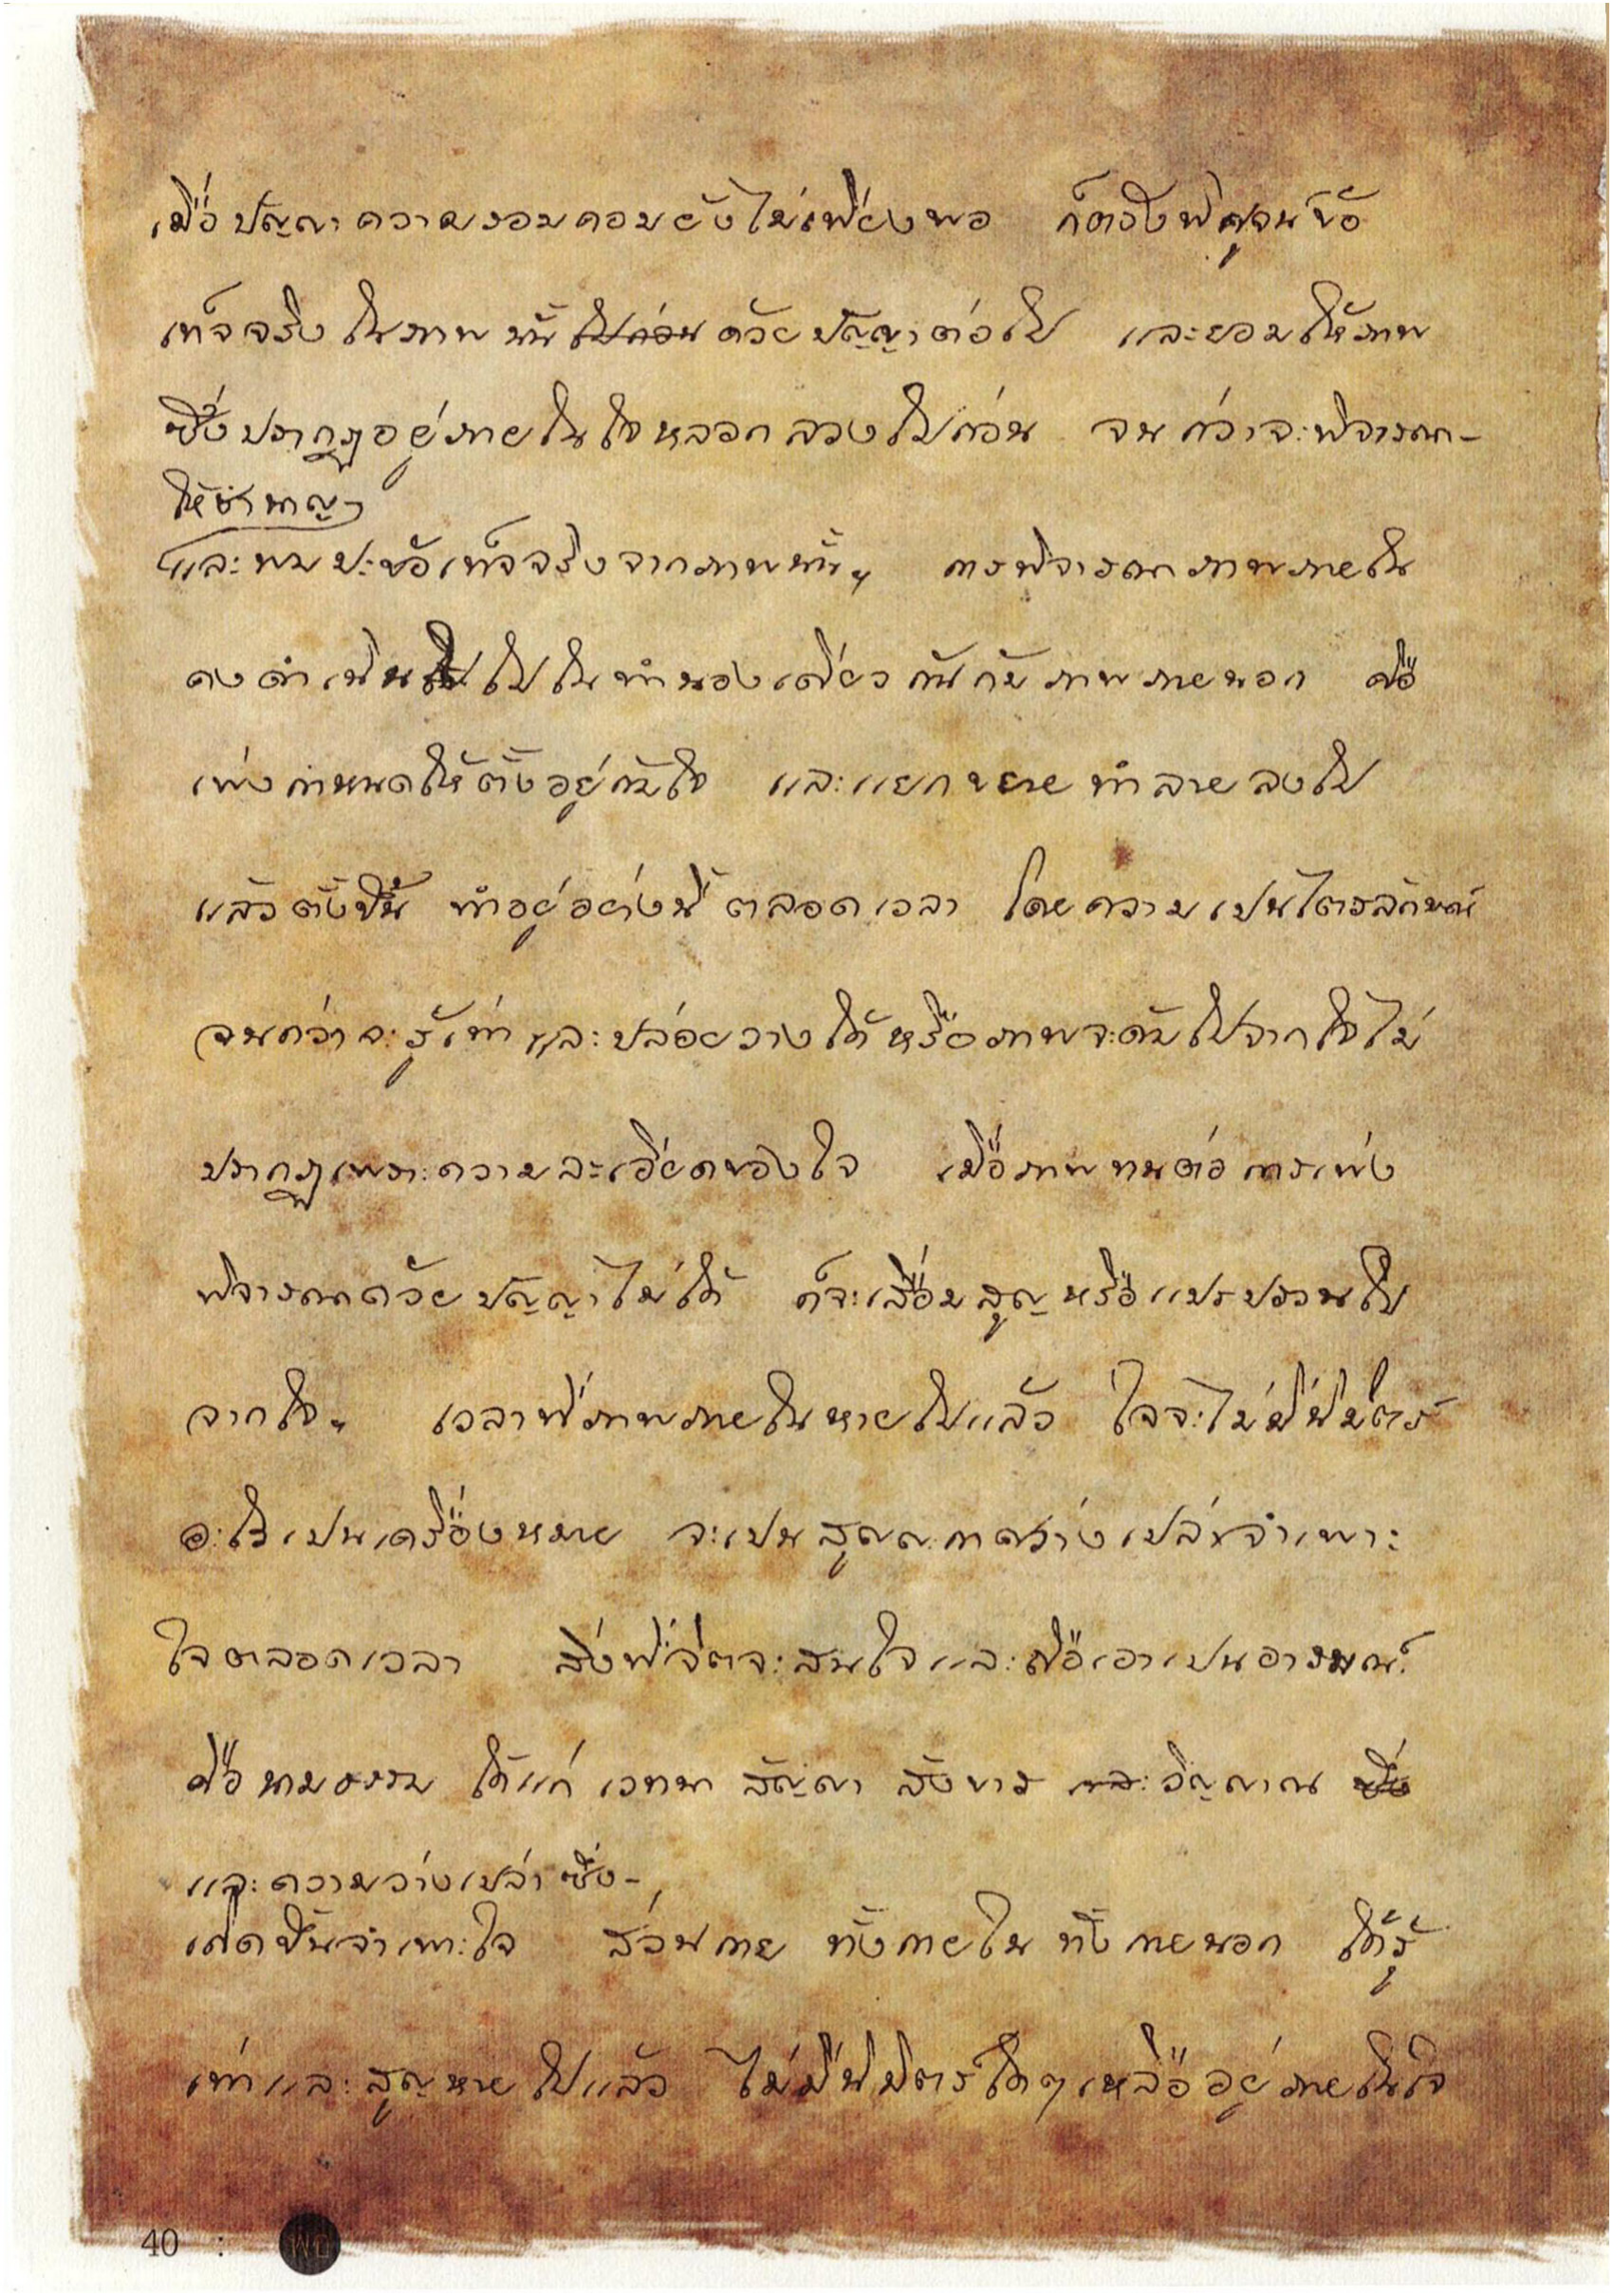 เมื่อปัญญาความรอบคอบยังไม่เพียงพอ ก็ตรึงพิศูจน์ข้อ
เท็จจริงในภาพนั้นไปก่อนด้วยปัญญาต่อไป และยอมให้ภาพ
ซึ่งปรากฎอยู่ภายในใจหลอกลวงไปก่อน จนกว่าจะพิจารณา-
ให้ชำนาญๆ
และพบปะข้อเท็จจริงจากภาพนั้นฯ การพิจารณาภาพภายใน
คงดำเนินไปในทำนองเดียวกันกับภาพภายนอก คือ
เพ่งกำหนดให้ตั้งอยู่กับใจ และแยกขยายทำลายลงไป
แล้วตั้งขึ้น ทำอยู่อย่างนี้ตลอดเวลา โดยความเป็นไตรลักษณ์
จนกว่าจะรู้เท่าและปล่อยวางได้หรือภาพจะดับไปจากใจไม่
ปรากฎเพราะความละเอียดของใจ เมื่อภาพทนต่อการเพ่ง
พิจารณาด้วยปัญญาไม่ได้ ก็จะเสื่อมสูญหรือแปรปรวนไป
จากใจฯ เวลาที่ภาพภายในหายไปแล้ว ใจจะไม่มีนิมิตร์
อะไรเป็นเครื่องหมาย จะเป็นสูญญะกาศว่างเปล่าจำเพาะ
ใจตลอดเวลา สิ่งที่จิตจะสนใจและถือเอาเป็นอารมณ์
คือนามธรรม ได้แก่ เวทนา สัญญา สังขาร และวิญญาณ ซึ่ง
และความว่างเปล่า ซึ่ง-
เกิดขึ้นจำเพาะใจ ส่วนกาย ทั้งกายใน ทั้งกายนอก ได้รู้
เท่าและสูญหายไปแล้ว ไม่มีนิมิตร์ใดๆเหลืออยู่ภายในใจ
40 :